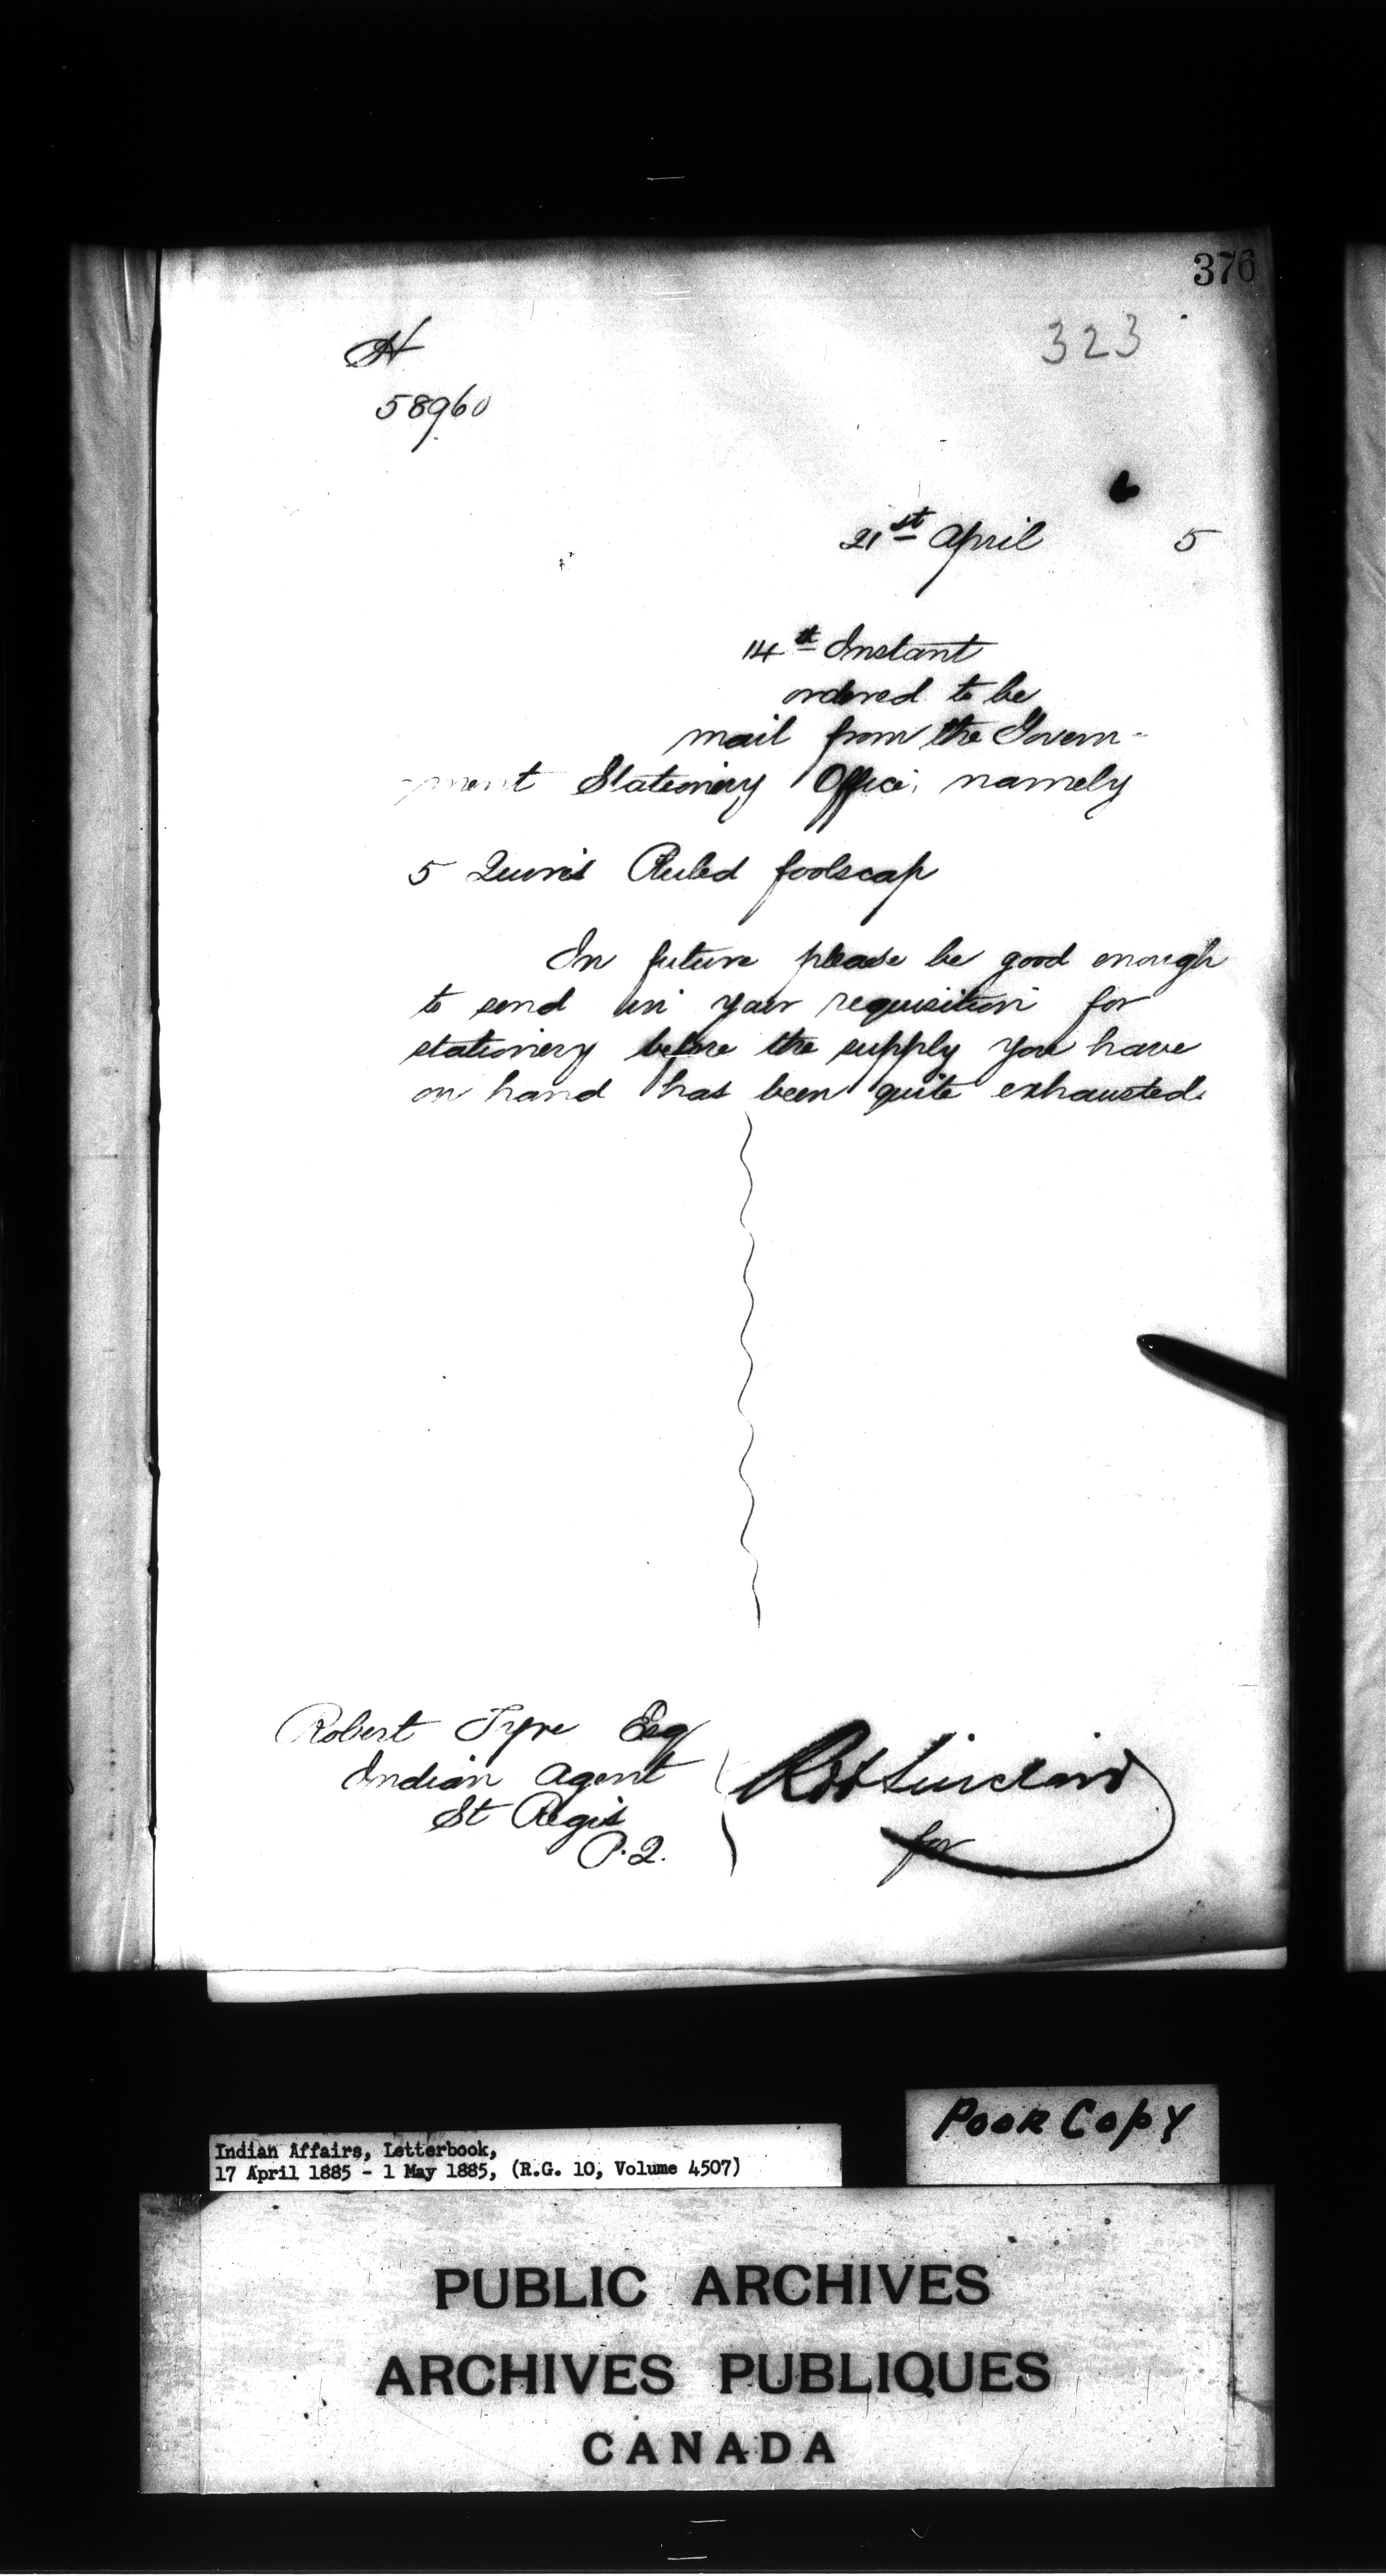 376
323
H
58960
21st April 5
14th Instant
ordered to be
mail from the Govern-
ment Stationery Office, namely
5 Quires Ruled foolscap
In future please be good enough
to send in your requisition for
stationery before the supply you have
on hand has been quite exhausted.
Robert Tyre Esq
Indian Agent
St Regis
P.Q.
Rt Sinclair
for
Poor Copy
Indian Affairs, Letterbook,
17 April 1885 - 1 May 1885, (R.G. 10, Volume 4507)
PUBLIC ARCHIVES
ARCHIVES PUBLIQUES
CANADA